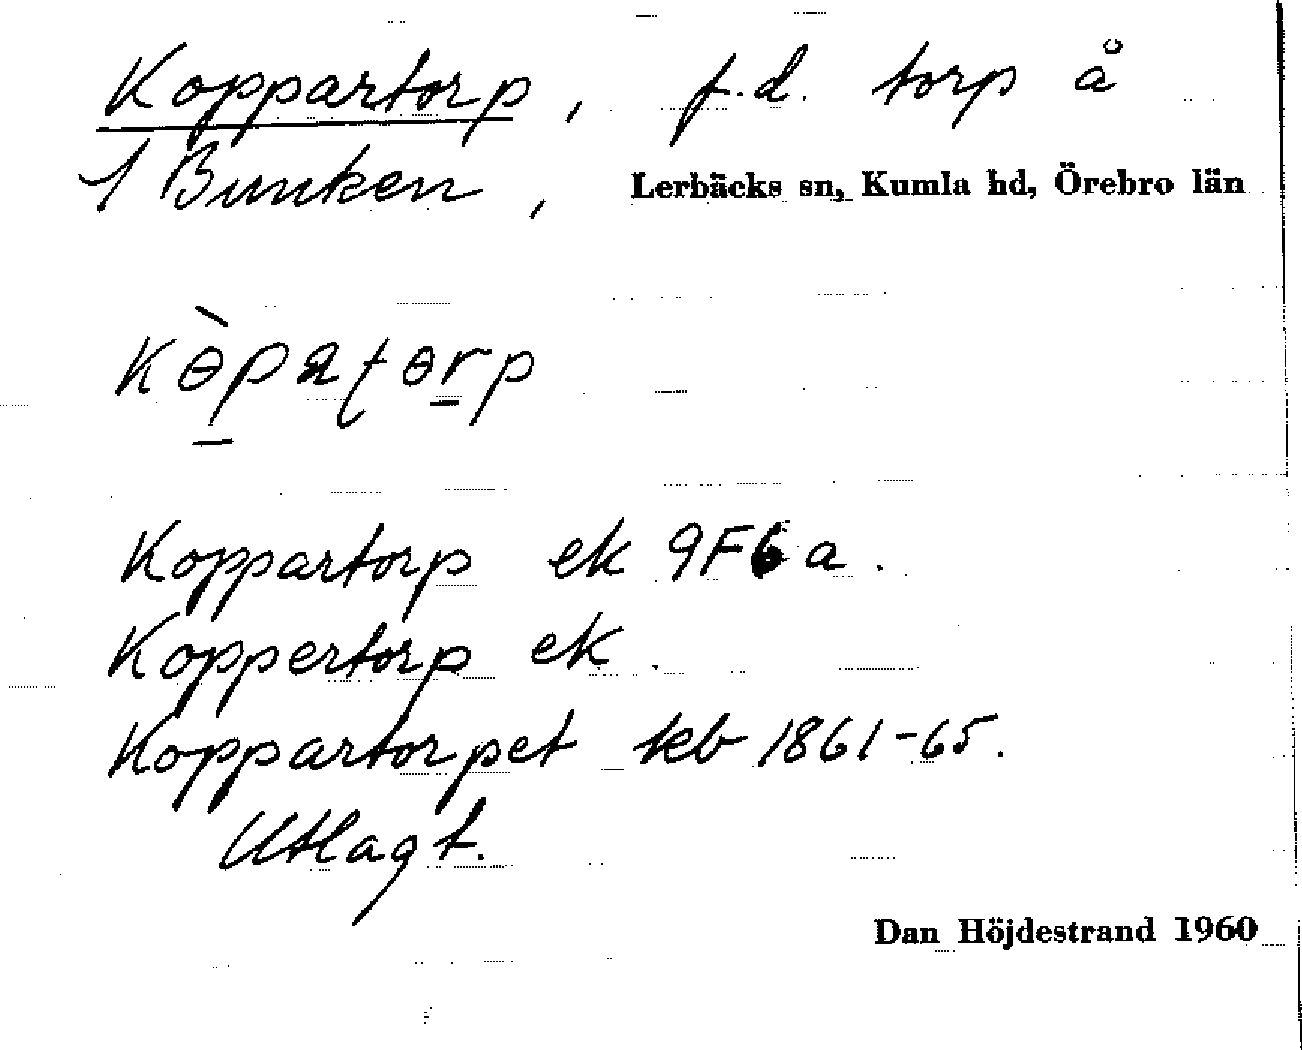 Koppartorp, f.d. torp å
1 Bunken, Lerbäcks sn, Kumla hd, Örebro län
Koppartorp ek 9F6a.
Koppertorp ek.
Koppartorpet kb 1861-65.
Utlagt.
Dan Höjdestrand 1960